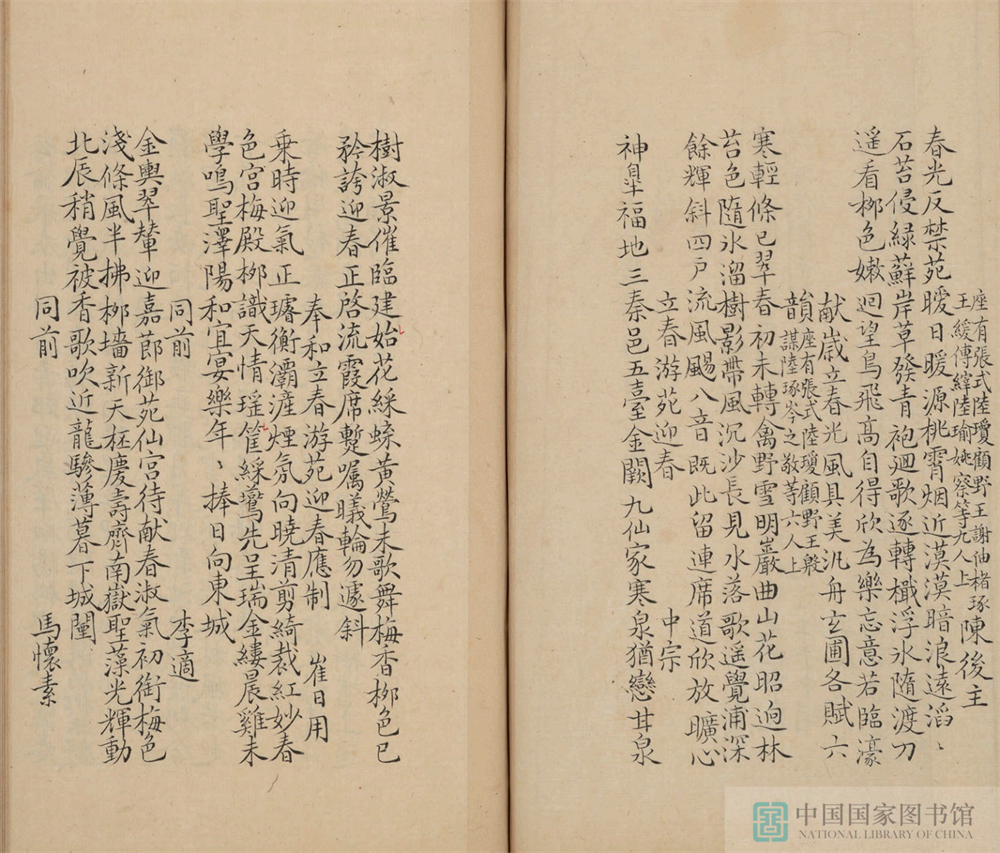 座有張式陸瓊顧野王謝伷褚琢
王緩傅縡陸瑜姚察等九人上
陳後主
春光反禁苑曖日暖源桃霄烟近漠漠暗浪遠滔〻
石苔侵綠蘚岸草發青袍迴歌逐轉檝浮氷隨渡刀
遥看栁色嫩迴望鳥飛高自得欣為樂忘意若臨濠
献歳立春光風具美汎舟玄圃各賦六
韻
座有張式陸瓊顧野王殷
謀陸琢岑之敬等六人上
寒輕條已翠春初未轉禽野雪明巖曲山花昭逈林
苔色隨氷溜樹影帶風沉沙長見水落歌遥覺浦深
餘輝斜四戶流風颺八音既此留連席道欣放曠心
立春游苑迎春
中宗
神臯福地三秦邑五臺金闕九仙家寒泉猶戀甘泉
樹淑景催臨建始花綵蝶黄鶯未歌舞梅香栁色已
矜誇迎春正啓流霞席蹔嘱曦輪勿遽斜
奉和立春游苑迎春應制
崔日用
乗時迎氣正璿衡灞滻煙氛向曉清剪綺裁紅妙春
色宫梅殿栁識天情瑶筐綵鷰先呈瑞金縷晨雞未
學鳴聖澤陽和宜宴樂年〻捧日向東城
同前
李適
金輿翠輦迎嘉莭御苑仙宮待献春淑氣初銜梅色
淺條風半拂栁墻新天柸慶壽齊南嶽聖藻光輝動
北辰稍覺被香歌吹近龍驂薄暮下城闉
同前
馬懷素
中国国家图书馆
NATIONAL LIBRARY OF CHINA